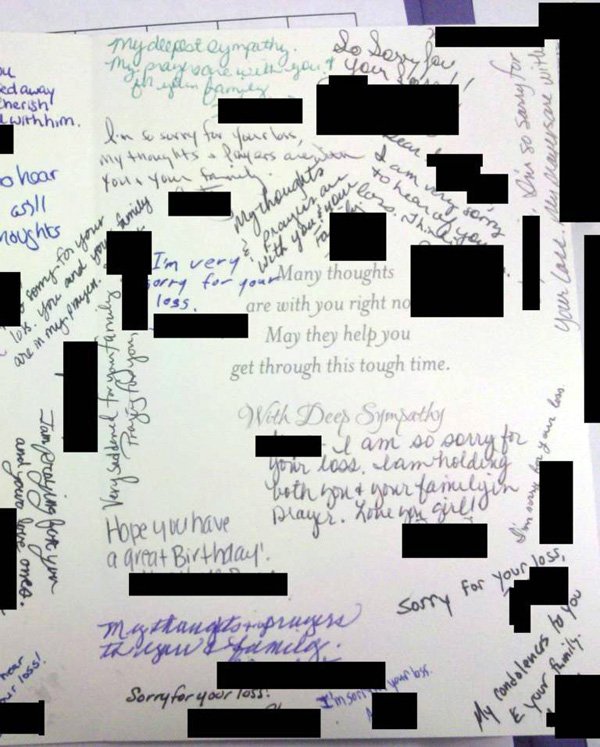 My deepest sympathy.
My prayers are with you &
for your family
So Sorry for
your loss!!
I'm so sorry for your loss,
My thoughts & Prayers are with
You & your family.
I am very sorry
to hear of your
loss. Thinking
I'm so sorry for
your loss. My prayers are with
My thoughts
& prayers are
with you & your
family
ed away
cherish
with him.
hear
as I'll
thoughts
sorry for your
loss. you and your family
are in my prayers.
I'm very
sorry for your
loss.
Many thoughts
are with you right no
May they help you
get through this tough time.
With Deep Sympathy
Very saddened for your family
Praying for you,
I am so sorry for
your loss. I am holding
both you & your family in
prayer. Love you girl!
I am praying for you
and your love ones.
I'm sorry for your loss
Hope you have
a great Birthday!
Sorry for your loss,
My thoughts & prayers
to you & family.
My condolences to you
& your family.
hear
ur loss!
Sorry for your loss!
I'm sorry for your loss.